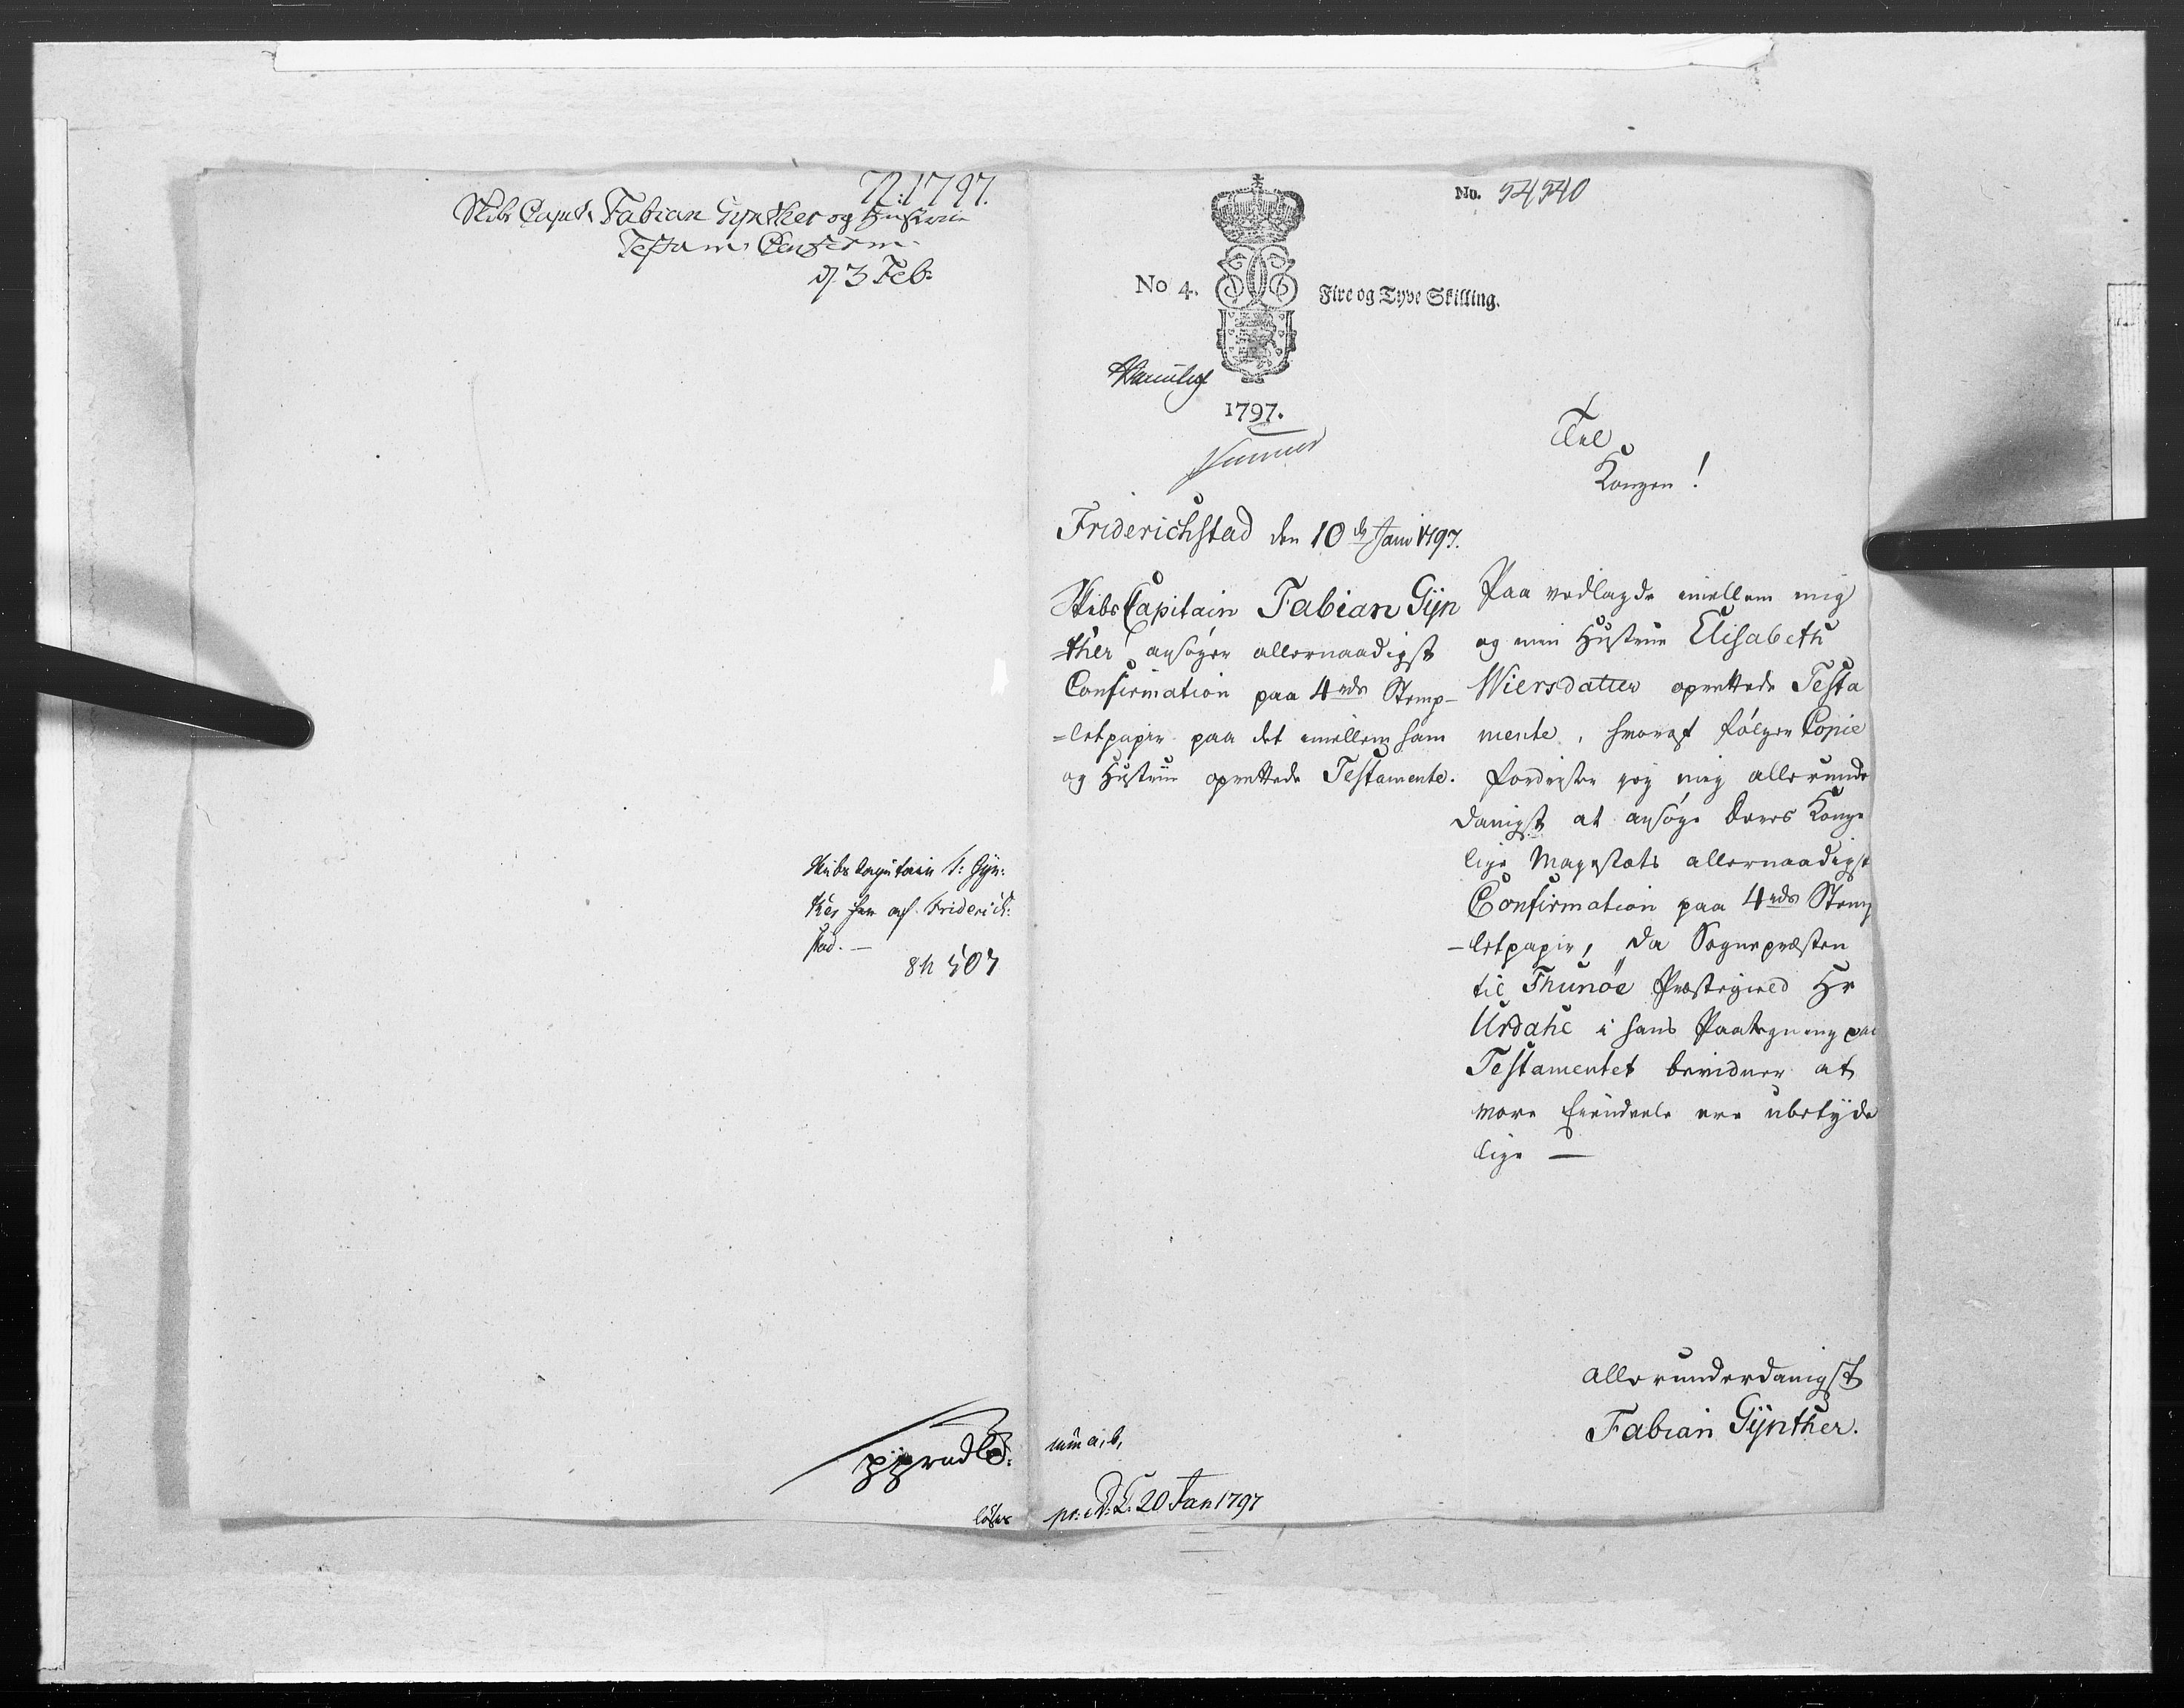 72:1797.
Skibs Capit: Fabian Gynther og Hustrue
Testam: Confirm.
d 3 Feb:
Skibs Capitain F: Gyn:
ther her af Friderich:
stad. —
løser
No. 54540
No 4.
Fire og Tyve Skilling.
1797.
Til
Kongen!
Friderichstad den 10de Janv 1797.
Skibs Capitain Fabian Gÿn
=ther ansøger allernaadigst
Confirmation paa 4rdls Stemp-
=letpapir paa det imellem ham
og Hustrue oprettede Testamente.
Paa vedlagde imellem mig
og min Hustrue Elisabeth
Wiersdatter oprettede Testa
mente, hvoraf følger Copie
fordrister jeg mig allerunder
danigst at ansøge Deres Konge
lige Mayestæts allernaadigst
Confirmation paa 4rdls Stemp
-letpapir, da Sognepræsten
til Thunøe Præstegield Hr
Urdahl i hans Paategning paa
Testamentet bevidner at
vore Eiendeele ere ubetÿde
lige —
allerunderdanigst
Fabian Gÿnther.
pr: d: 20 Jan 1797